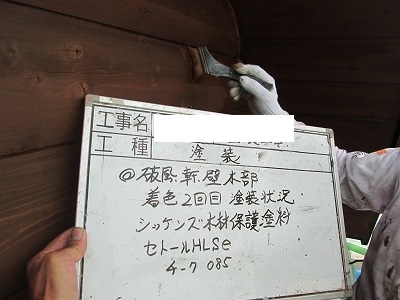 工事名
工種 塗装
@破風・軒・壁 木部
着色2回目 塗装状況
シッケンズ木材保護塗料
セトールHLSe
チーク 085